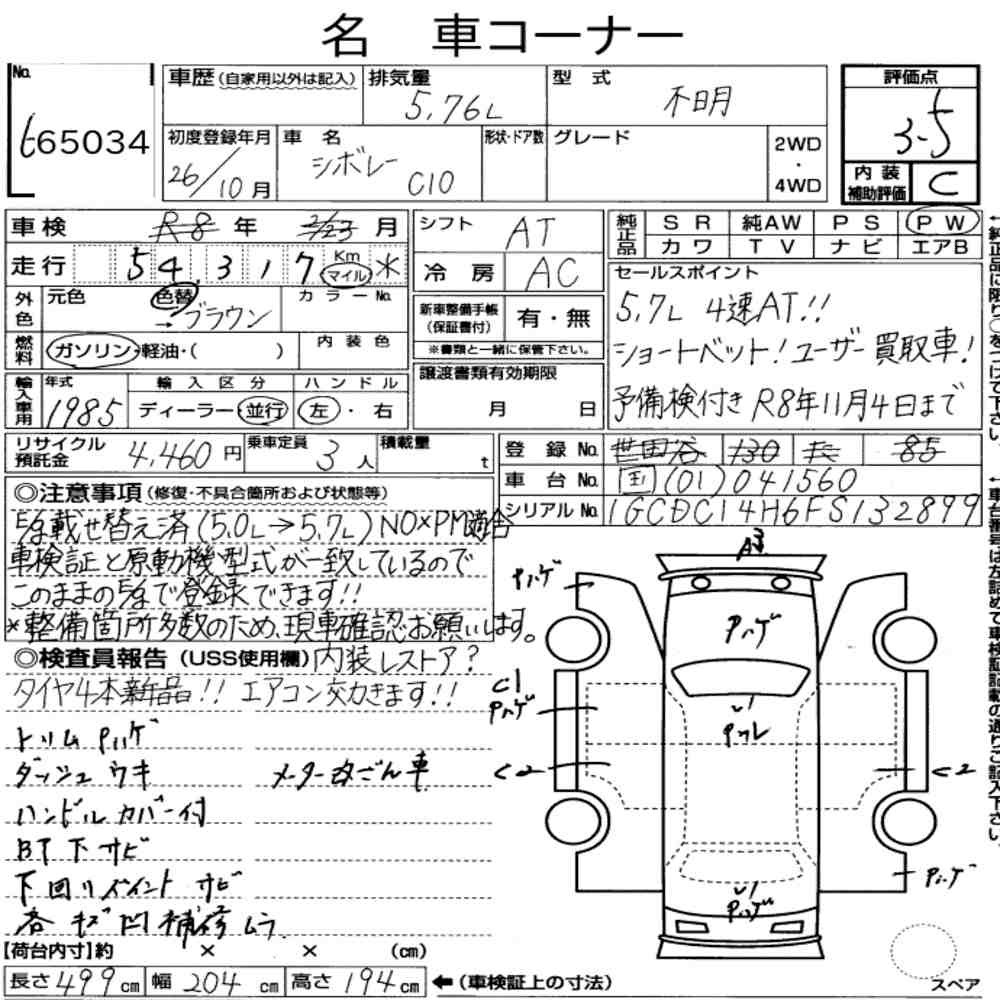 名 車コーナー
No.
t65034
車歴(自家用以外は記入)
排気量
5.76L
型 式
不明
評価点
3.5
初度登録年月
26/10月
車 名
シボレー C10
形状・ドア数
グレード
2WD
・
4WD
内 装
補助評価
C
車検 R8年 2/23月
シフト AT
純正品
SR 純AW PS PW
カワ TV ナビ エアB
走行 54,317 Km マイル ※
冷 房 AC
セールスポイント
5.7L 4速AT!!
ショートベット!ユーザー買取車!
予備検付き R8年11月4日まで
外色 元色 色替 カラーNo.
→ブラウン
新車整備手帳
(保証書付)
有・無
※書類と一緒に保管下さい。
燃料 ガソリン・軽油・( )
内 装 色
譲渡書類有効期限
月 日
輸入車用
年式
1985
輸 入 区 分
ディーラー・並行
ハ ン ド ル
左・右
リサイクル
預託金
4,460円
乗車定員
3人
積載量
t
登 録 No. 世田谷 130 85
車 台 No. 国(01)041560
シリアルNo. 1GCDC14H6FS132899
◎注意事項(修復・不具合箇所および状態等)
E/g載せ替え済(5.0L→5.7L)NO×PM適合
車検証と原動機型式が一致しているので
このままのE/gで登録できます!!
*整備箇所多数のため、現車確認お願いします。
◎検査員報告(USS使用欄)内装レストア?
タイヤ4本新品!! エアコン交力きます!!
トリムPハゲ
ダッシュウキ メーター改ざん車
ハンドルカバー付
BT下サビ
下回リペイントサビ
各キズ凹補修ムラ
【荷台内寸】約 × × (cm)
長さ 499cm 幅 204cm 高さ 194cm ←(車検証上の寸法)
A3
Pハゲ
Pハゲ
C1
Pハゲ
C2
C2
Pハゲ
Pハゲ
スペア
←純正品に限り○をつけて下さい。
←車台番号は左詰めで車検証記載の通りご記入下さい。